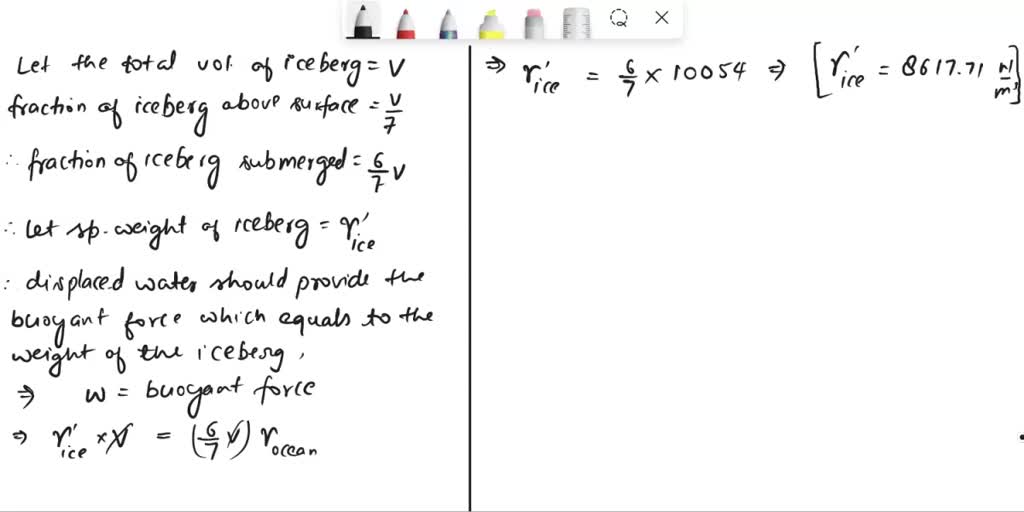 Let the total vol. of iceberg = V
fraction of iceberg above surface = V/7
∴ fraction of iceberg submerged = 6/7 V
∴ Let sp. weight of iceberg = r'ice
: displaced water should provide the
buoyant force which equals to the
weight of the iceberg,
⇒ w = buoyant force
⇒ r'ice × V = (6/7 V) rocean
⇒ r'ice = 6/7 × 10054 ⇒ [r'ice = 8617.71 N/m³]